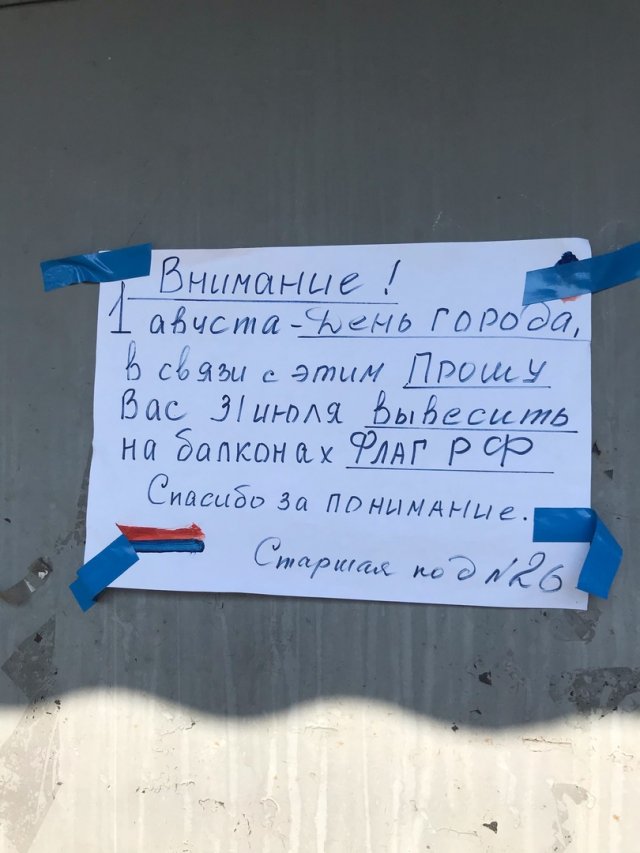 Внимание!
1 августа - День города,
в связи с этим Прошу
Вас 31 июля вывесить
на балконах Флаг РФ
Спасибо за понимание.
Старшая по д №26